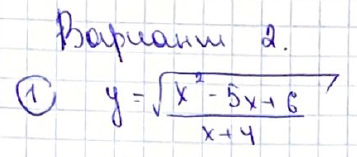 Вариант 2.
① y = √((x² - 5x + 6)/(x + 4))